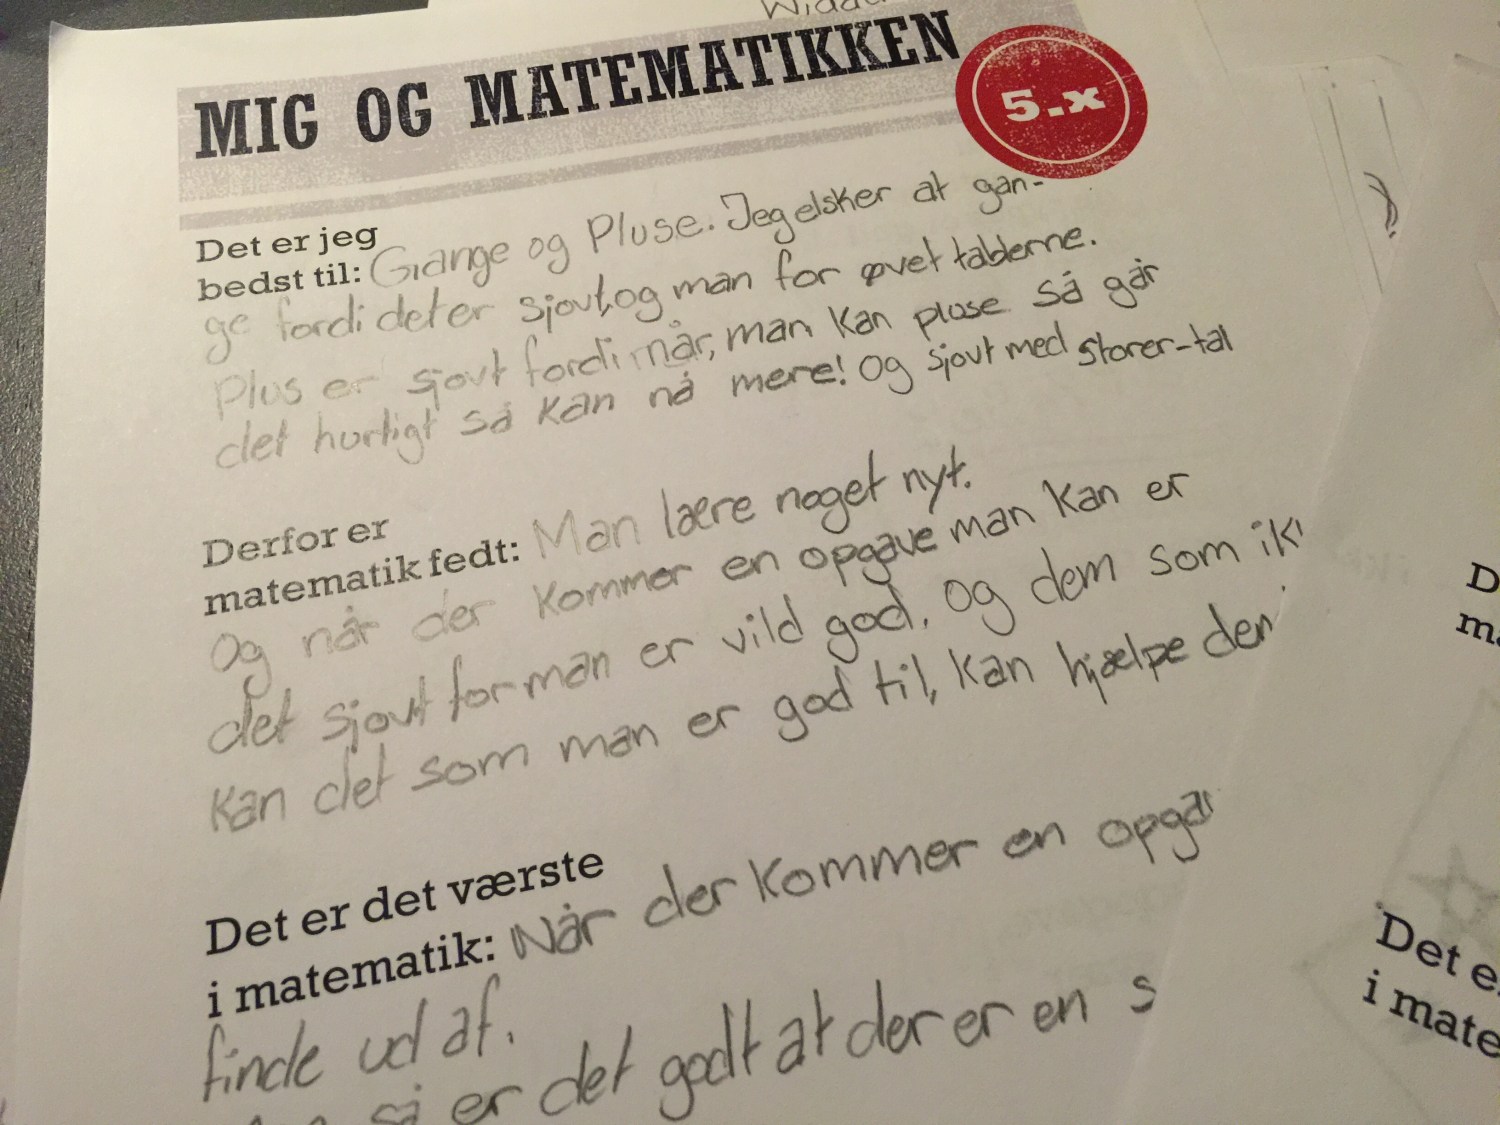 MIG OG MATEMATIKKEN
5.x
Det er jeg
bedst til: Gange og Pluse. Jeg elsker at gan-
ge fordi det er sjovt, og man for øvet tablerne.
Plus er sjovt fordi når, man kan pluse så går
det hurtigt så kan nå mere! Og sjovt med storer-tal
Derfor er
matematik fedt: Man lære noget nyt.
Og når der kommer en opgave man kan er
det sjovt for man er vild god. Og dem som ik
kan det som man er god til, kan hjælpe den
Det er det værste
i matematik: Når der kommer en opga
finde ud af.
så er det godt at der er en s
D
ma
Det e
i mate